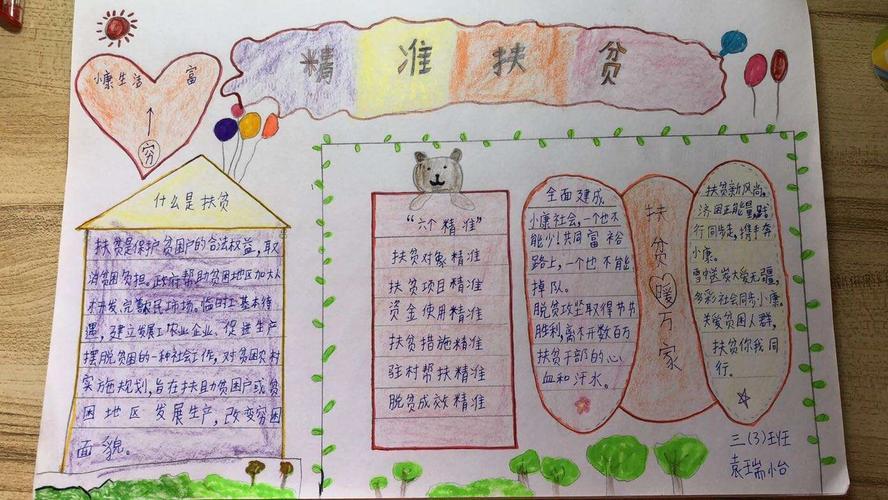 精准扶贫
小康生活 富
穷
什么是扶贫
扶贫是保护贫困户的合法权益,取
消贫困负担。政府帮助贫困地区加大人
才开发、完善农民工市场。临时工基本待
遇,建立发展工农业企业、促进生产
摆脱贫困的一种社会工作,对贫困农村
实施规划,旨在扶助贫困户或贫
困地区发展生产,改变穷困
面貌。
“六个精准”
扶贫对象精准
扶贫项目精准
资金使用精准
扶贫措施精准
驻村帮扶精准
脱贫成效精准
全面建成
小康社会,一个也不
能少!共同富裕
路上,一个也不能
掉队。
脱贫攻坚取得节节
胜利,离不开数百万
扶贫干部的心
血和汗水。
扶贫暖万家
扶贫新风尚,
济困正能量,践
行同步走,携手奔
小康。
雪中送炭大爱无疆,
多彩社会同步小康。
关爱贫困人群,
扶贫你我同
行。
三(3)班
袁瑞怡